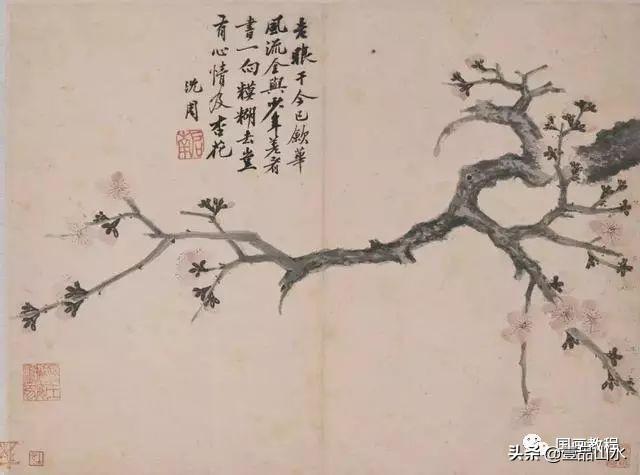 老眼于今已歛華
風流全與少年差看
書一向糢糊去豈
有心情及杏花
沈周
啟南
国画教程
头条@壹品山水